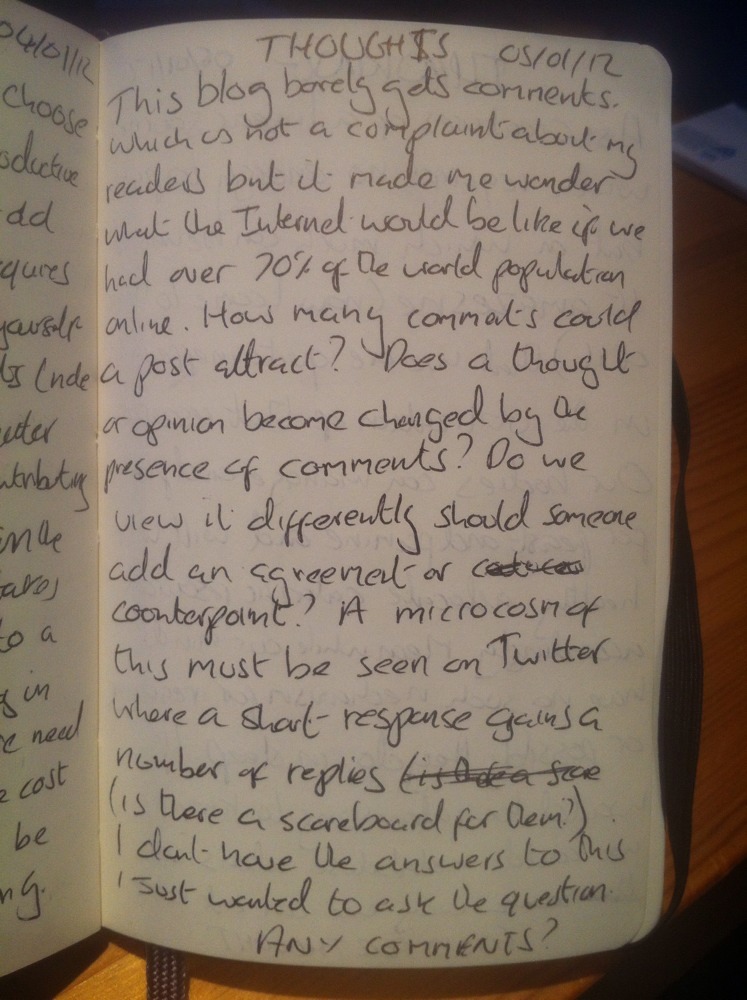 04/01/12
choose
oductive
dd
quires
yourself
ts (nde
uter
ntributing
in the
ares
to a
g in
e need
e cost
be
ng.
THOUGHTS 05/01/12
This blog barely gets comments.
which is not a complaint about my
readers but it made me wonder
what the Internet would be like if we
had over 70% of the world population
online. How many comments could
a post attract? Does a thought
or opinion become changed by the
presence of comments? Do we
view it differently should someone
add an agreement or
counterpoint? A microcosm of
this must be seen on Twitter
where a short response gains a
number of replies (is there a score
(is there a scoreboard for them?)
I don't have the answers to this
I just wanted to ask the question.
ANY COMMENTS?